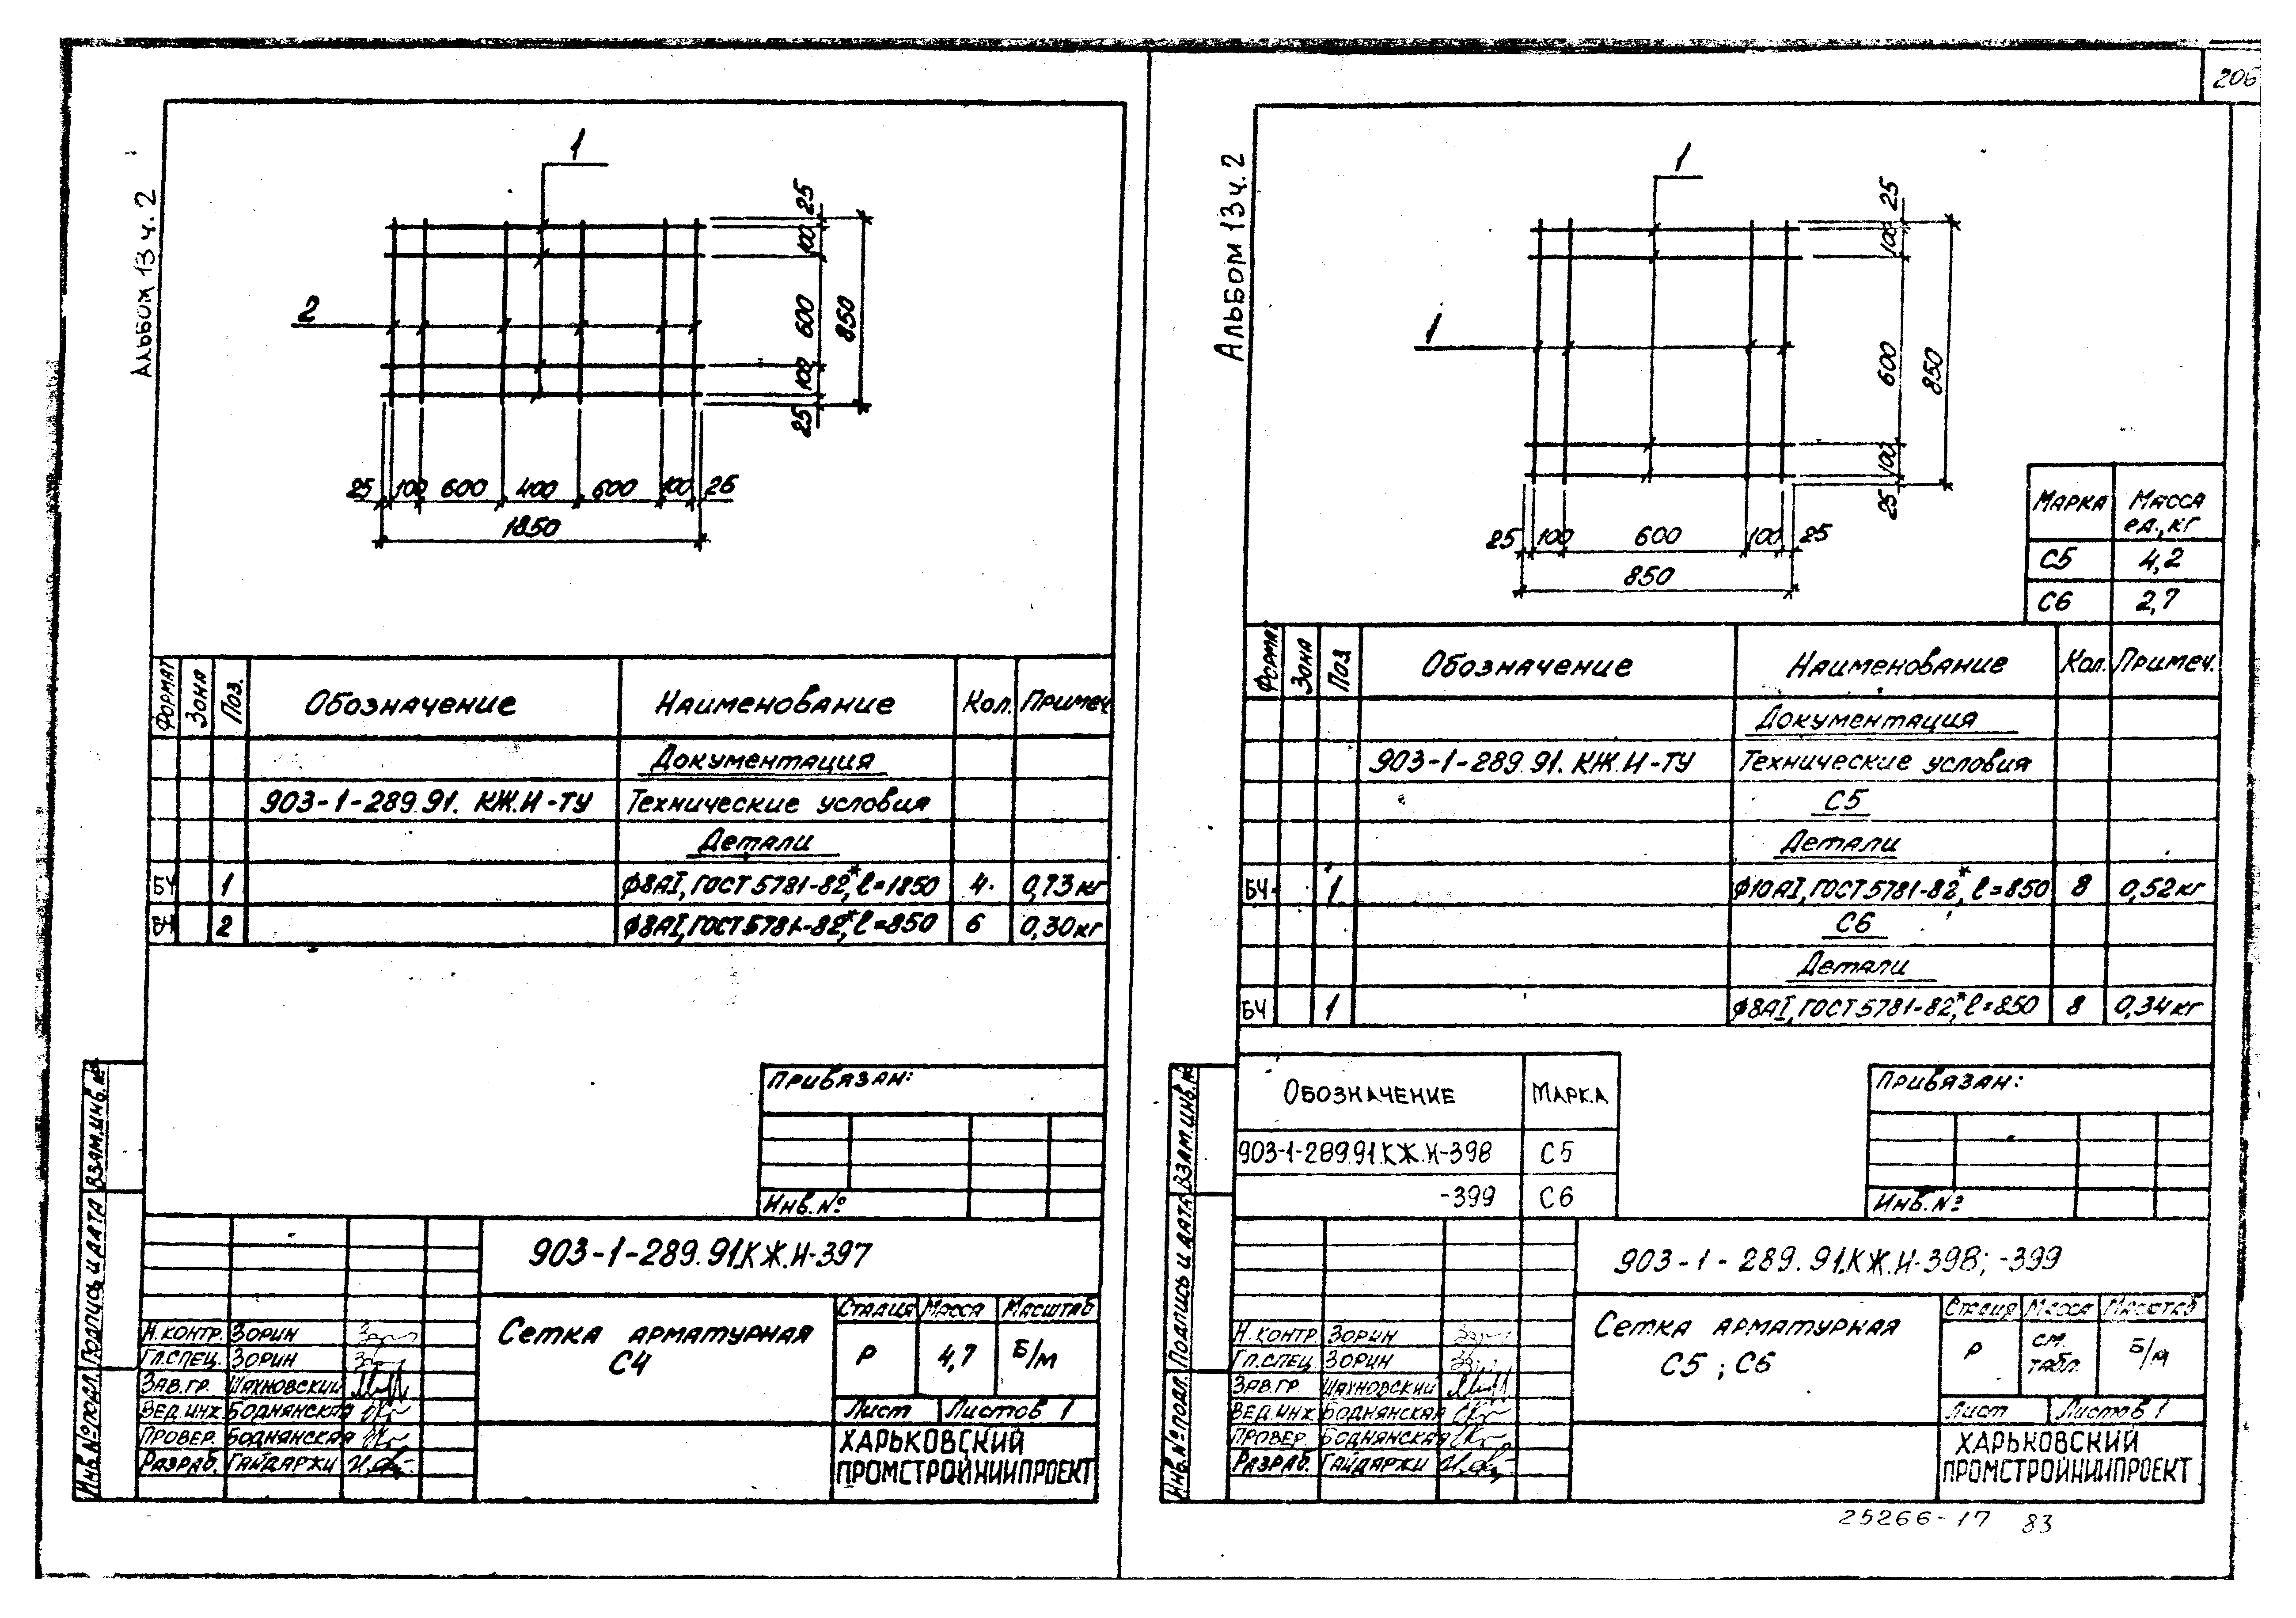 206
Альбом 13 ч. 2
1
2
25
100
600
100
25
850
25 100 600 400 600 100 25
1850
Формат Зона Поз. Обозначение Наименование Кол. Примеч.
Документация
903-1-289.91. КЖ.И-ТУ Технические условия
Детали
БЧ 1 ф8АI, ГОСТ 5781-82*, ℓ=1850 4 0,73 кг
БЧ 2 ф8АI, ГОСТ 5781-82*, ℓ=850 6 0,30 кг
Привязан:
Инв. №
Взам. инв. №
Подпись и дата
Инв. № подл.
903-1-289.91.КЖ.И-397
Сетка арматурная
С4
Стадия Масса Масштаб
Р 4,7 Б/м
Лист Листов 1
Харьковский
Промстройниипроект
Н.контр. Зорин
Гл.спец. Зорин
Зав.гр. Шахновский
Вед.инж. Боднянская
Провер. Боднянская
Разраб. Гайдаржи
Альбом 13 ч. 2
1
1
25
100
600
100
25
850
25 100 600 100 25
850
Марка Масса ед., кг
С5 4,2
С6 2,7
Формат Зона Поз. Обозначение Наименование Кол. Примеч.
Документация
903-1-289.91. КЖ.И-ТУ Технические условия
С5
Детали
БЧ 1 ф10АI, ГОСТ 5781-82*, ℓ=850 8 0,52 кг
С6
Детали
БЧ 1 ф8АI, ГОСТ 5781-82*, ℓ=850 8 0,34 кг
Обозначение Марка
903-1-289.91.КЖ.И-398 С5
-399 С6
Привязан:
Инв. №
Взам. инв. №
Подпись и дата
Инв. № подл.
903-1-289.91.КЖ.И-398; -399
Сетка арматурная
С5; С6
Стадия Масса Масштаб
Р см. табл. Б/м
Лист Листов 1
Харьковский
Промстройниипроект
Н.контр. Зорин
Гл.спец. Зорин
Зав.гр. Шахновский
Вед.инж. Боднянская
Провер. Боднянская
Разраб. Гайдаржи
25266-17 83